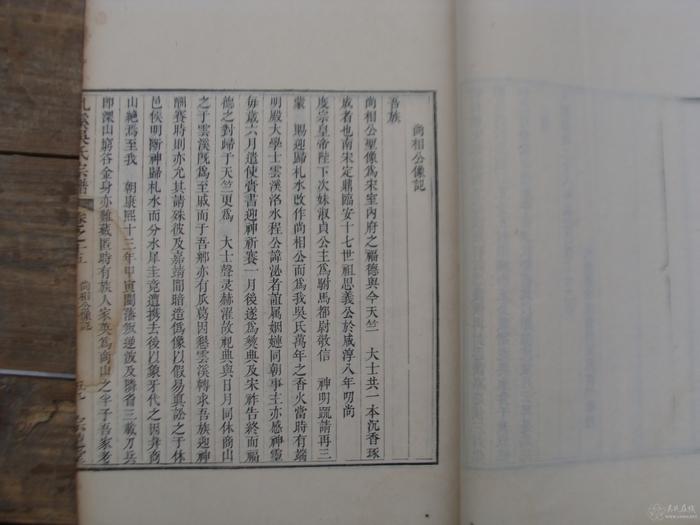 尚相公像記
吾族
尚相公聖像為宋室內府之福德與今天竺 大士共一本沉香琢
成者也南宋定鼎臨安十七世祖思義公於咸淳八年叨尚
度宗皇帝陛下次妹淑貞公主為駙馬都尉敬信 神明疏請再三
蒙 賜迎歸札水改作尚相公而為我吳氏萬年之香火當時有端
明殿大學士雲溪洺水程公諱泌者誼屬姻嫌同朝事主亦感神靈
每歲六月遣使賫書迎神祈賽一月後遂為獎典及宋祚告終而福
德之對歸于天竺更為 大士聲灵赫濯故祀典與日月同休商山
之于雲溪既為至戚而于吾鄉亦有瓜葛因懇雲溪轉求吾族迎神
酬賽時則亦允其請殊彼及嘉靖間暗造偽像以假易真訟之于休
邑侯明斷神歸札水而分水犀圭竟遭攜去後以象牙代之因弁商
山絶焉至我 朝康熙十三年甲寅閩藩叛逆波及隣省三載刀兵
即深山窮谷金身亦難藏匿時有族人家英為商山之半子吾家考
吳氏宗譜
卷之二五
尚相公像記